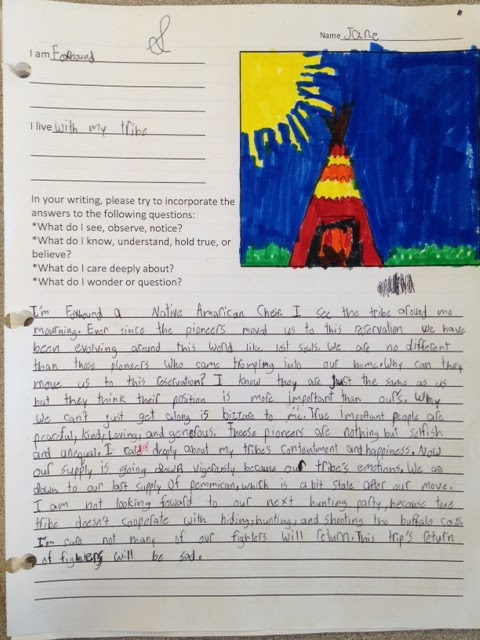 Name Jane
I am Foxhound
I live with my tribe
In your writing, please try to incorporate the
answers to the following questions:
*What do I see, observe, notice?
*What do I know, understand, hold true, or
believe?
*What do I care deeply about?
*What do I wonder or question?
I'm Foxhound a Native Amarican Cheif. I see the tribe around me
mourning. Ever since the pioneers moved us to this reservation we have
been evolving around this world like lost souls. We are no different
than those pioneers who came tromping into our home. Why can they
move us to this reservation? I know they are just the same as us
but they think their position is more important than ours. Why
we can't just get along is bizzare to me. True important people are
peaceful, kind, loving, and generous. Theese pioneers are nothing but selfish
and unequal. I care deeply about my tribe's contentment and happiness. Now
our supply is going down vigerantly because our tribe's emotions. We are
down to our last supply of pemmican, which is a bit stale after our move.
I am not looking foward to our next hunting party, because the
tribe doesn't cooperate with hiding, hunting, and shooting the buffalo
I'm not many of our fighters will return. This trip's return
of fighters will be sad.